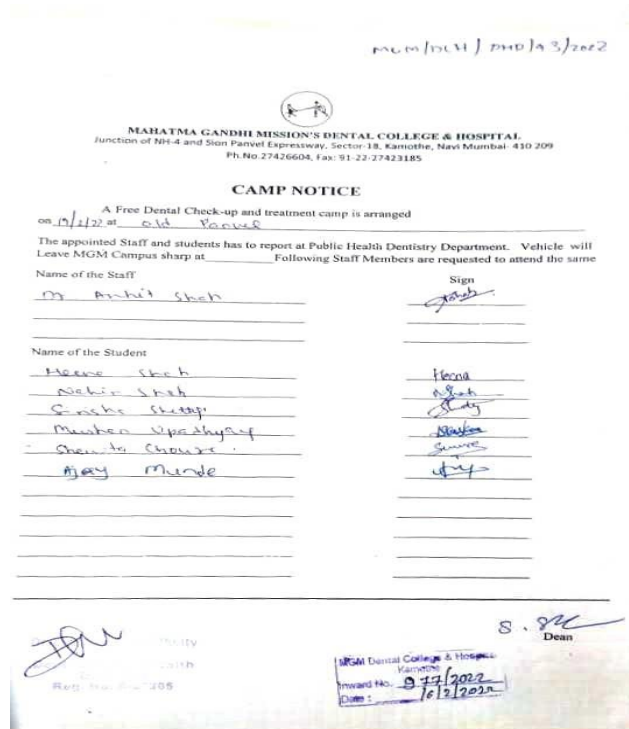 MGM/DCH/PHD/93/2022
MAHATMA GANDHI MISSION'S DENTAL COLLEGE & HOSPITAL
Junction of NH-4 and Sion Panvel Expressway, Sector-18, Kamothe, Navi Mumbai- 410 209
Ph.No.27426604, Fax: 91-22-27423185
CAMP NOTICE
A Free Dental Check-up and treatment camp is arranged
on 19/2/22 at Old Panvel
The appointed Staff and students has to report at Public Health Dentistry Department. Vehicle will
Leave MGM Campus sharp at Following Staff Members are requested to attend the same
Name of the Staff Sign
Dr Ankit Shah
Name of the Student
Heena Shah Heena
Shah
Shetty
Muskan Upadhyay
Ajay Munde
S.
Dean
MGM Dental College & Hospital
Kamothe
Inward No. 977/2022
Date : 16/2/2022